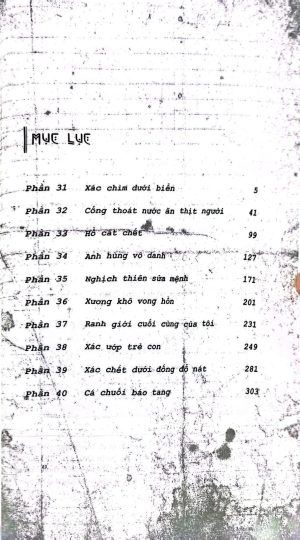 MỤC LỤC
Phần 31 Xác chìm dưới biển 5
Phần 32 Cống thoát nước ăn thịt người 41
Phần 33 Hồ cát chết 99
Phần 34 Anh hùng vô danh 127
Phần 35 Nghịch thiên sửa mệnh 171
Phần 36 Xương khô vong hồn 201
Phần 37 Ranh giới cuối cùng của tôi 231
Phần 38 Xác ướp trẻ con 249
Phần 39 Xác chết dưới đống đổ nát 281
Phần 40 Cá chuối báo tang 303